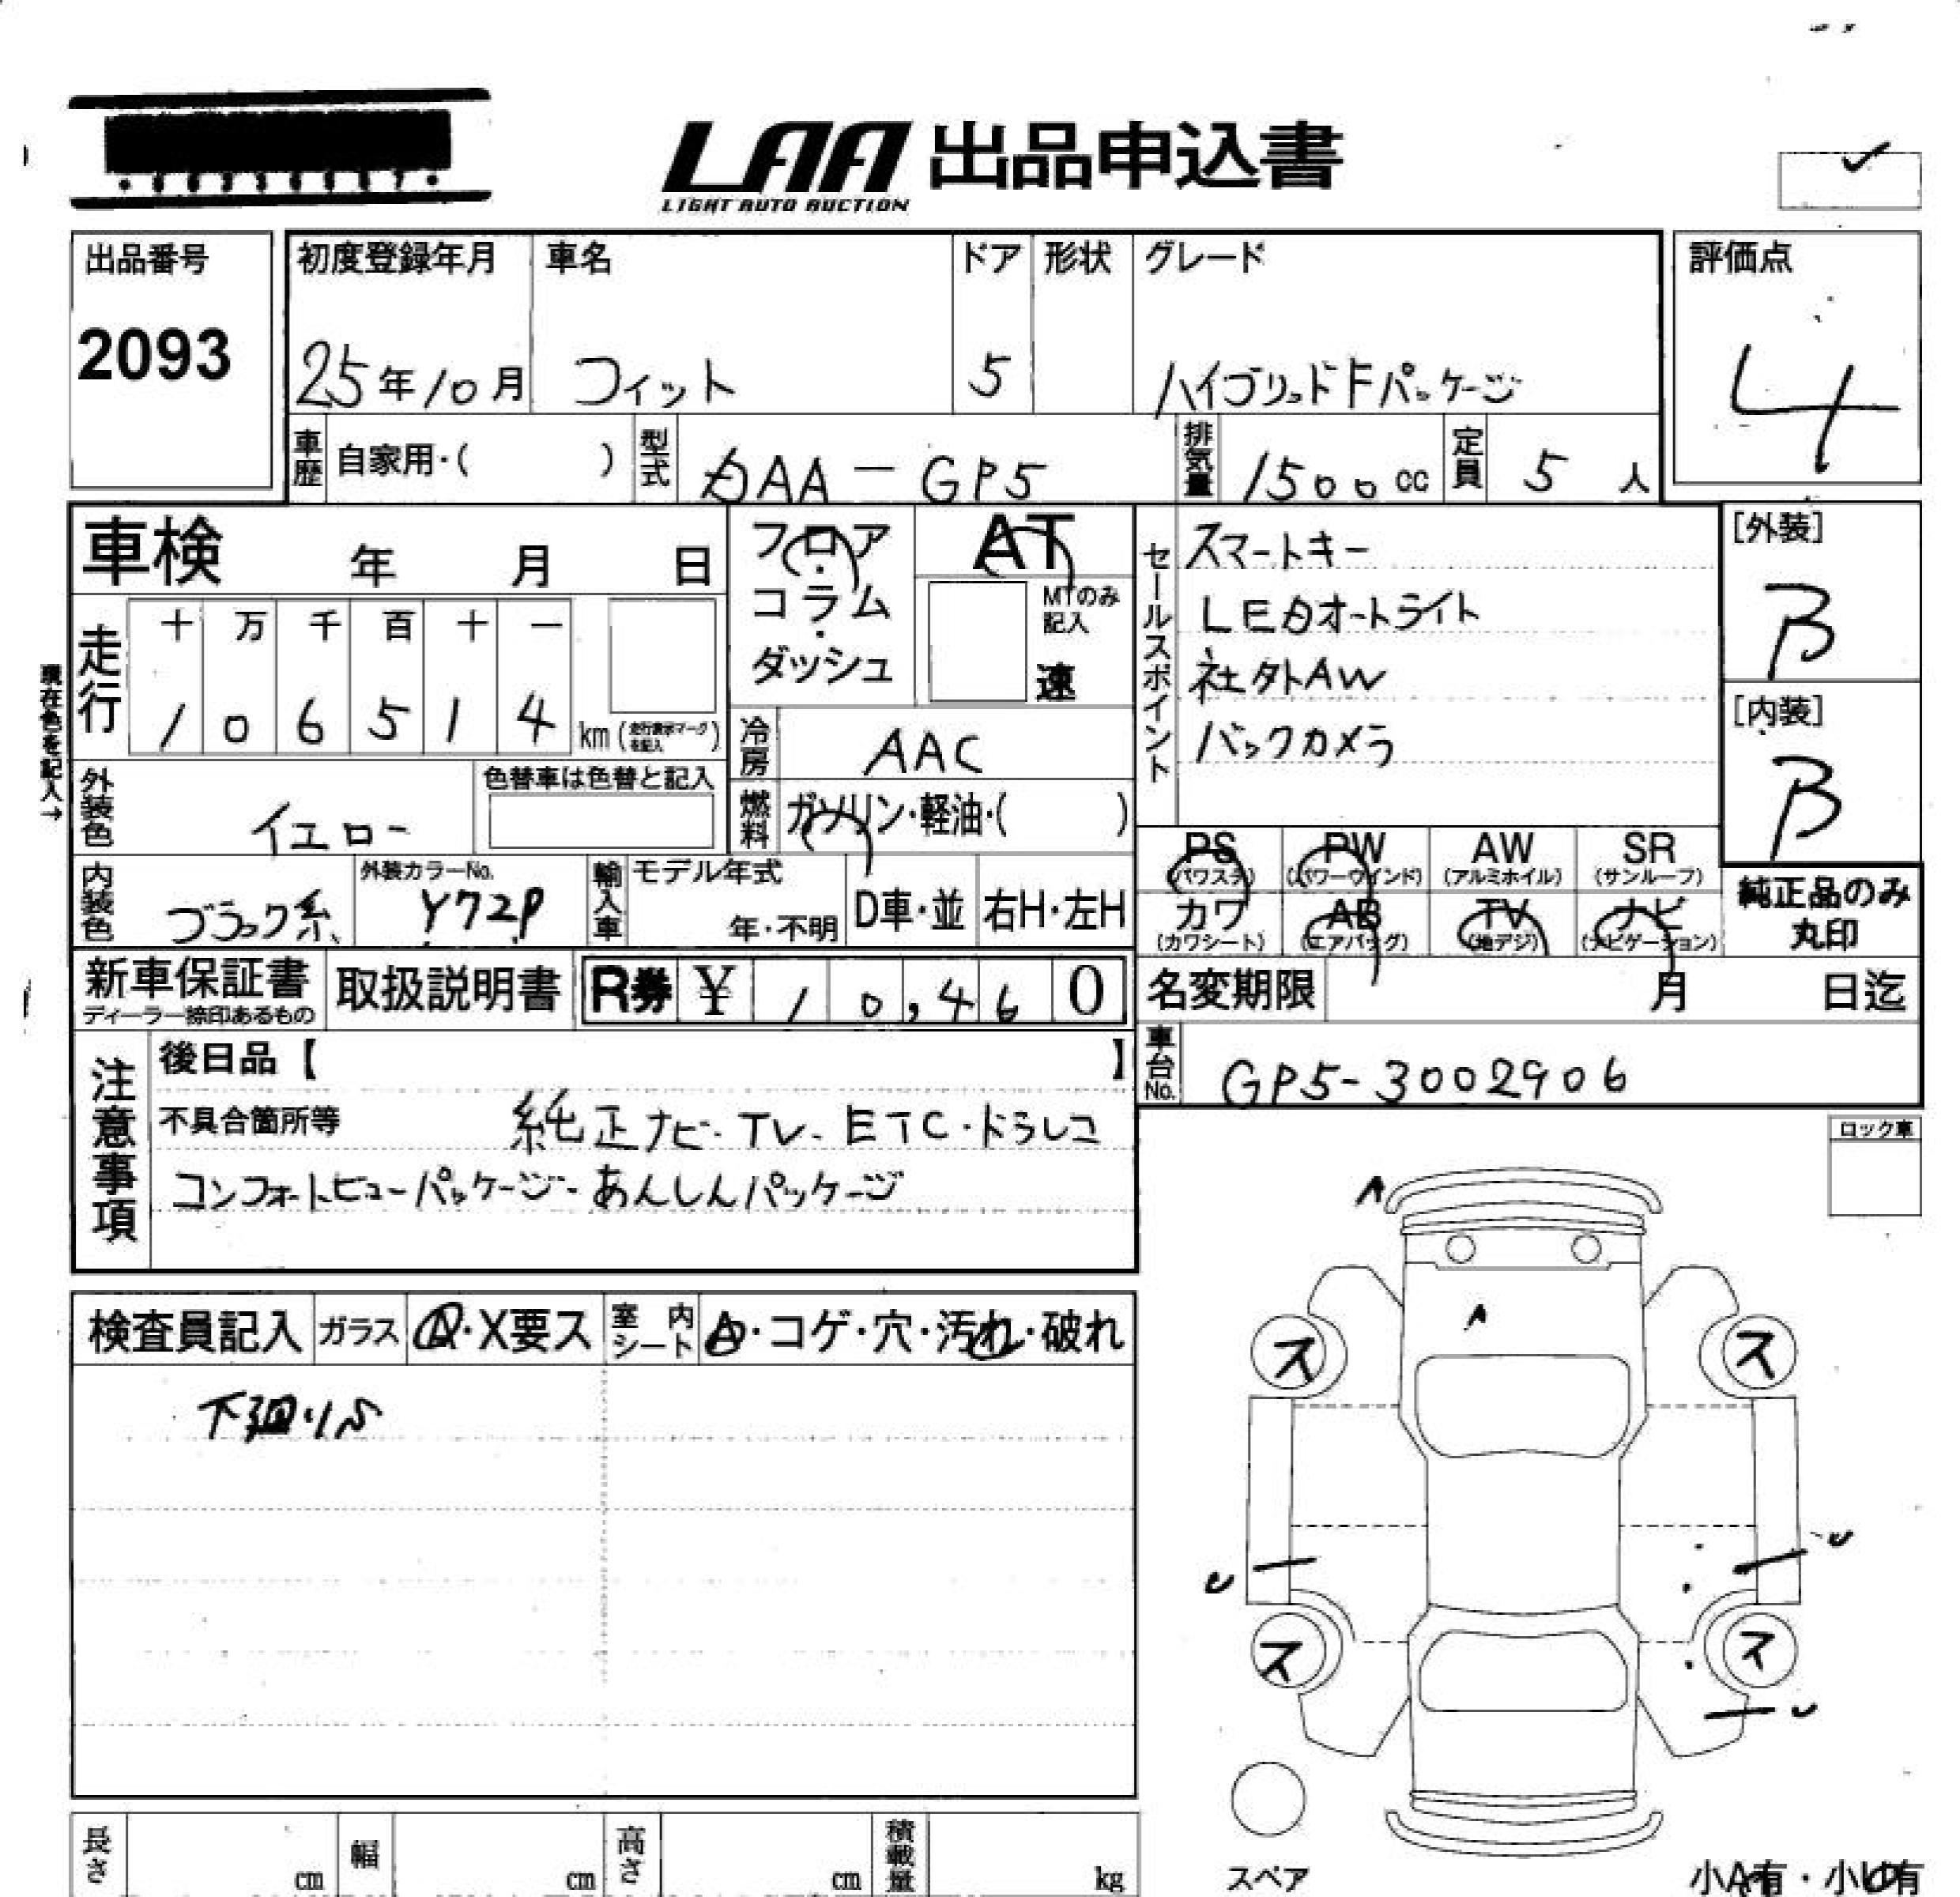 LAA 出品申込書
LIGHT AUTO AUCTION
出品番号
2093
初度登録年月 車名 ドア 形状 グレード
25年10月 フィット 5 ハイブリッドFパッケージ
評価点
4
車歴 自家用・( ) 型式 DAA-GP5 排気量 1500cc 定員 5人
車検 年 月 日
フロア・コラム・ダッシュ
AT
MTのみ記入
速
セールスポイント
スマートキー
LEDオートライト
社外AW
バックカメラ
[外装]
B
[内装]
B
現在色を記入→
走行 十 万 千 百 十 一
1 0 6 5 1 4 km
冷房 AAC
燃料 ガソリン・軽油・( )
外装色 イエロー
色替車は色替と記入
内装色 ブラック系
外装カラーNo.
Y72P
輸入車 モデル年式
年・不明
D車・並 右H・左H
PS (パワステ) PW (パワーウインド) AW (アルミホイル) SR (サンルーフ)
カワ (カワシート) AB (エアバッグ) TV (地デジ) ナビ (ナビゲーション)
純正品のみ
丸印
新車保証書
ディーラー捺印あるもの
取扱説明書
R券 ¥ 10,460
名変期限 月 日迄
車台No. GP5-3002906
注意事項
後日品【 】
不具合箇所等 純正ナビ・TV・ETC・ドラレコ
コンフォートビューパッケージ・あんしんパッケージ
ロック車
検査員記入 ガラス A・X要ス 室内シート A・コゲ・穴・汚れ・破れ
下廻りS
A
A
ス ス
U U
ス ス
U
スペア
小A有・小U有
長さ cm 幅 cm 高さ cm 積載量 kg